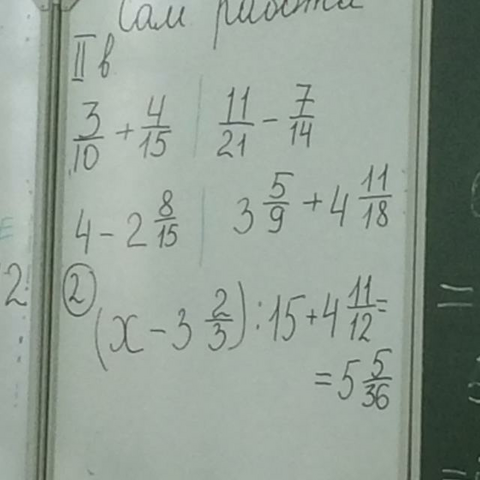 Сам работа
II в
3/10 + 4/15 | 11/21 − 7/14
4 − 2 8/15 | 3 5/9 + 4 11/18
2 ② (x − 3 2/3) : 15 + 4 11/12 =
= 5 5/36